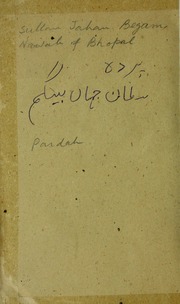 Sultan Jahan Begam
Nawab of Bhopal
پردہ
سلطان جہاں بیگم
Pardah